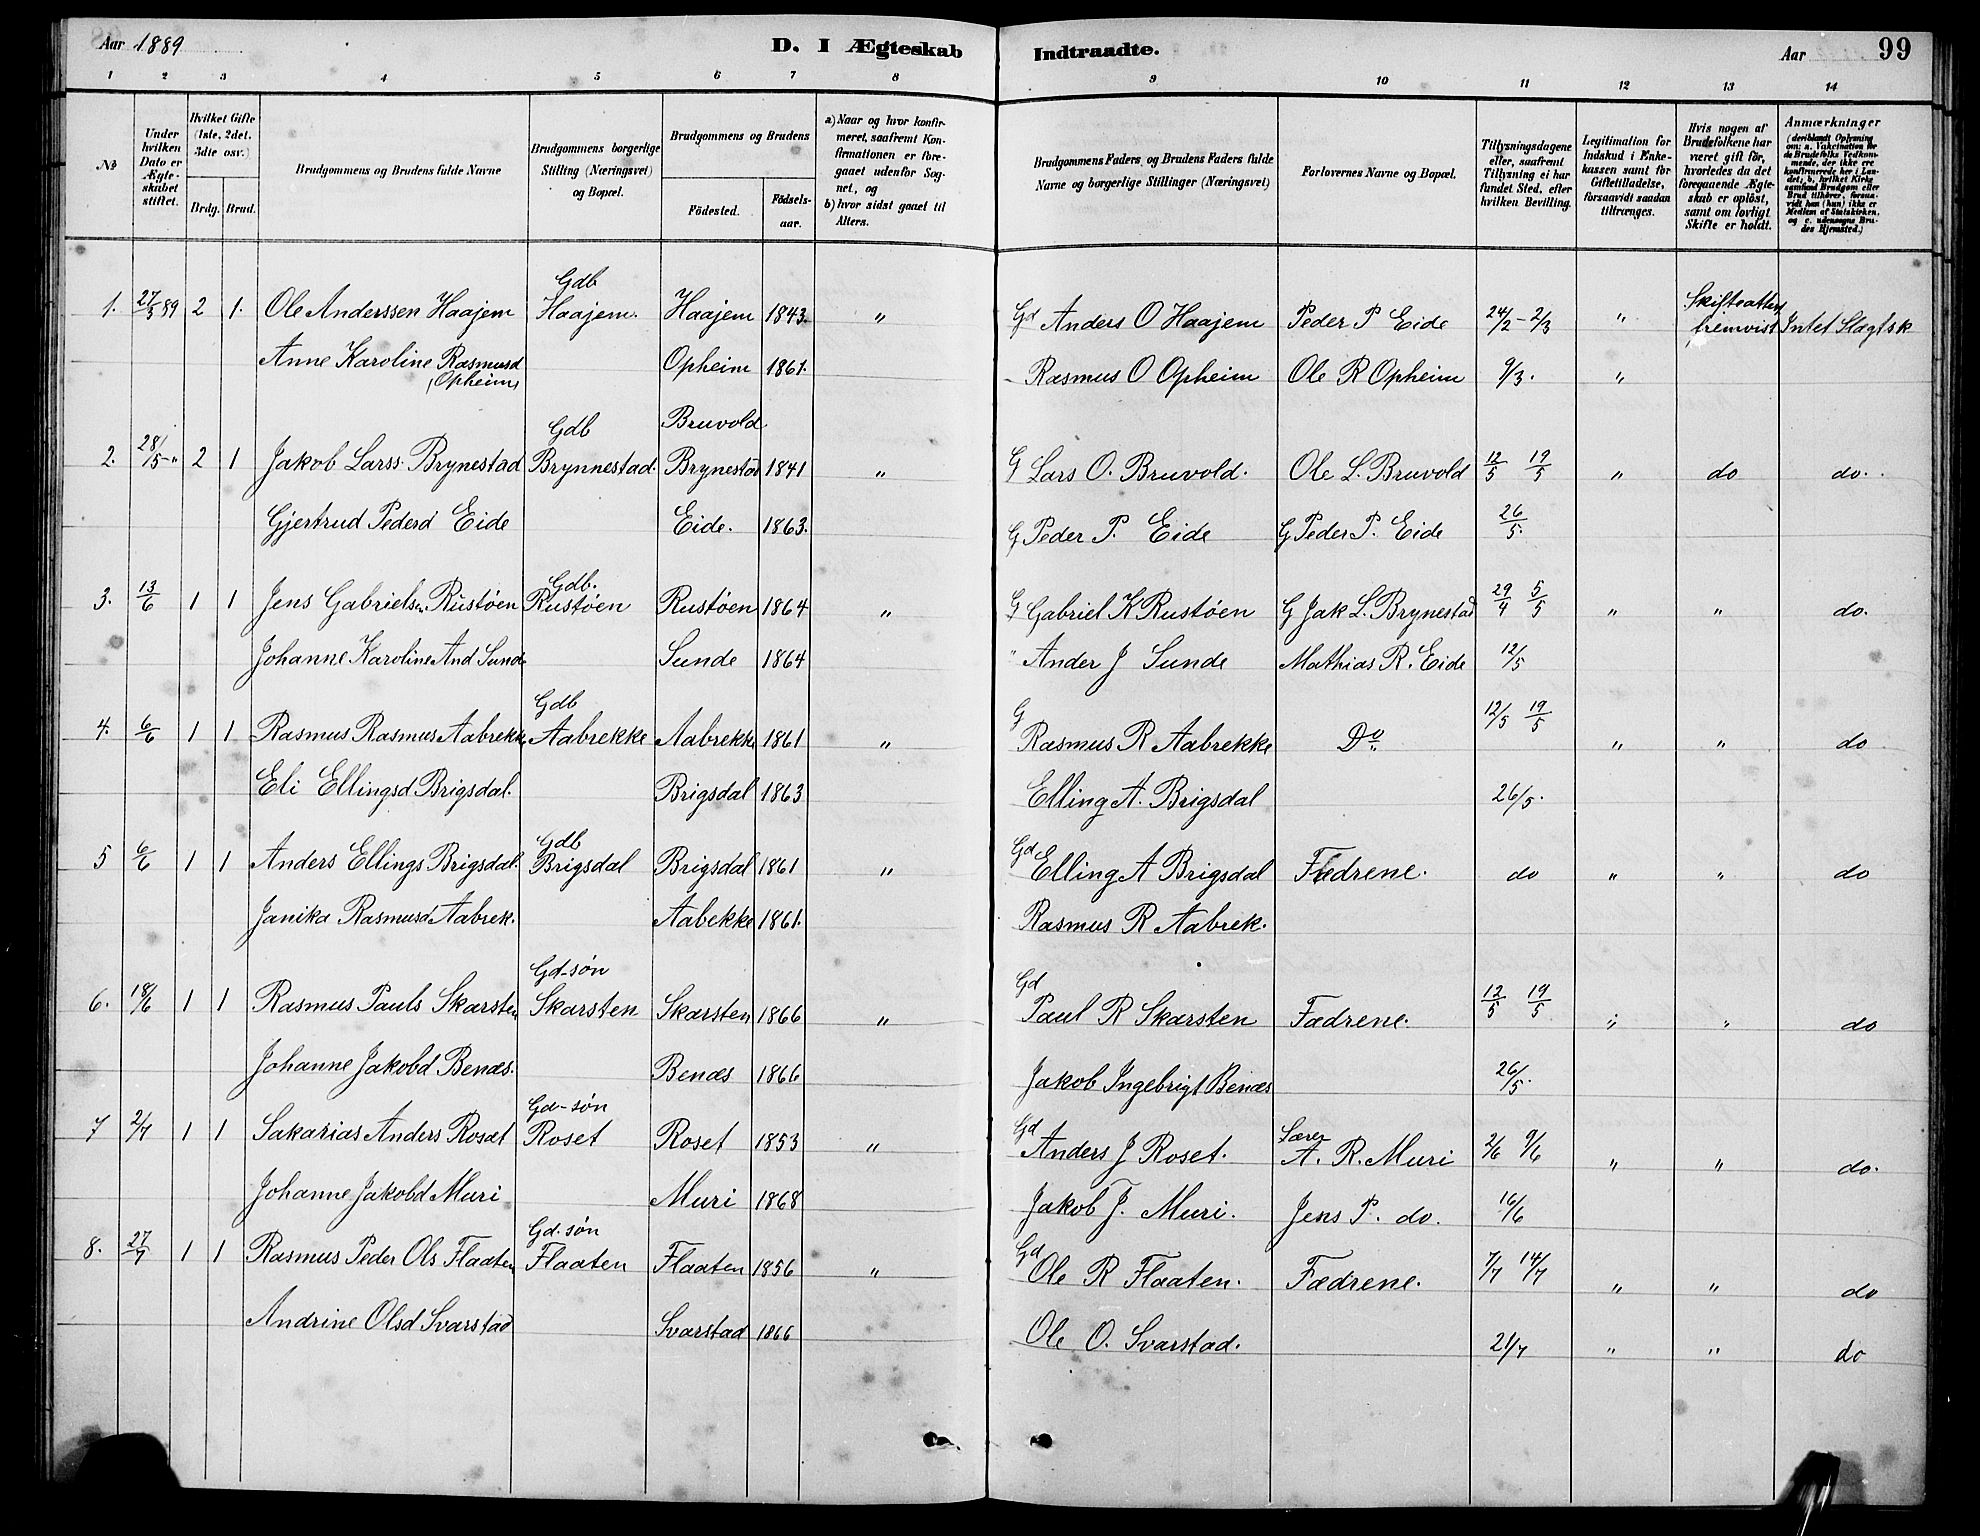 Aar 1889
D. I Ægteskab Indtraadte.
Aar
99
1 2 3 4 5 6 7 8 9 10 11 12 13 14
No
Under hvilken Dato er Ægteskabet stiftet.
Hvilket Gifte (1ste, 2det, 3die osv.)
Brdg. Brud.
Brudgommens og Brudens fulde Navne
Brudgommens borgerlige Stilling (Næringsvei) og Bopæl.
Brudgommens og Brudens
Fødested.
Fødselsaar.
a) Naar og hvor konfirmeret, saafremt Konfirmationen er foregaaet udenfor Sognet, og
b) hvor sidst gaaet til Alters.
Brudgommens Faders og Brudens Faders fulde Navne og borgerlige Stillinger (Næringsvei)
Forlovernes Navne og Bopæl.
Tillysningsdagene eller, saafremt Tillysning ei har fundet Sted, efter hvilken Bevilling.
Legitimation for Indskud i Enkekassen samt for Giftetilladelse, forsaavidt saadan tiltrænges.
Hvis nogen af Brudefolkene har været gift før, hvorledes da det foregaaende Ægteskab er opløst, samt om lovligt Skifte er holdt.
Anmærkninger
(deriblandt Oplysning om: a. Vakcination for de Brudefolks Vedkommende, der ikke ere konfirmerede her i Landet; b. hvilket Kirkesamfund Brudgom eller Brud tilhører, forsaavidt han (hun) ikke er Medlem af Statskirken, og c. udensogns Brudes Hjemsted.)
Gdb
1. 27/3 89 2 1. Ole Anderssen Haajem Haajem. Haajem 1843. " Gd Anders O Haajem Peder P Eide 24/2 - 2/3 " Skifteattest fremvist Intet Slægtsk
Anne Karoline Rasmusd Opheim 1861. - Rasmus O Opheim Ole R Opheim 9/3. "
(Opheim)
Gdb Bruvold.
2. 28/5 -" 2 1 Jakob Larss. Brynestad Brynnestad. Brynestad 1841 " G Lars O. Bruvold. Ole L. Bruvold 12/5 19/5 " do do.
Gjertrud Pedersd Eide Eide. 1863. G Peder P. Eide G Peder P. Eide 26/5.
Gdb.
3. 13/6 1 1 Jens Gabrielsen Rustøen Rustøen Rustøen 1864 " G Gabriel K Rustøen G Jak L. Brynestad 29/4 5/5 " " do.
Johanne Karoline And Sunde Sunde 1864 " Ander J Sunde Mathias R. Eide 12/5
Gdb G
4. 6/6 1 1 Rasmus Rasmus Aabrekke Aabrekke Aabrekke 1861 " Rasmus R Aabrekke Do 12/5 19/5 " " do
Eli Ellingsd Brigsdal. Brigsdal 1863 Elling A. Brigsdal 26/5.
Gdb
5 6/6 1 1 Anders Ellings Brigsdal. Brigsdal Brigsdal 1861 " Gd Elling A Brigsdal Fædrene. do " " do
Janika Rasmusd Aabrek. Aabekke 1861. Rasmus R Aabrek.
Gd-søn Gd
6. 18/6 1 1 Rasmus Pauls Skarsten Skarsten Skarsten 1866 " Paul R Skarsten Fædrene. 12/5 19/5 " " do
Johanne Jakobd Benæs. Benæs 1866 Jakob Ingebrigt Benæs 26/5.
Gd-søn Lærer
7 2/7 1 1 Sakarias Anders Roset Roset Roset 1853 " Gd Anders J Roset. A. R. Muri 2/6 9/6 " " do.
Johanne Jakobd Muri Muri 1868 Jakob J. Muri. Jens P. do. 16/6
Gd-søn
8. 27/7 1 1 Rasmus Peder Ols Flaaten Flaaten Flaaten 1856 " Gd Ole R Flaaten. Fædrene. 7/7 14/7 " " do
Andrine Olsd Svarstad Svarstad 1866 Ole O. Svarstad. 21/7 " " do